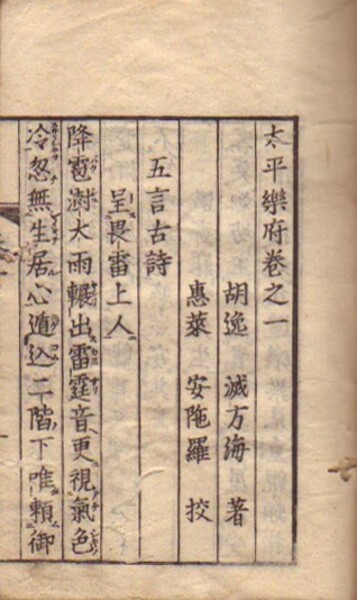 太平樂府卷之一
胡逸 滅方海 著
惠萊 安陁羅 挍
五言古詩
呈畏雷上人
降雹澍大雨輾出雷霆音更視氣色
冷忽無生居心遁込二階下唯頼御